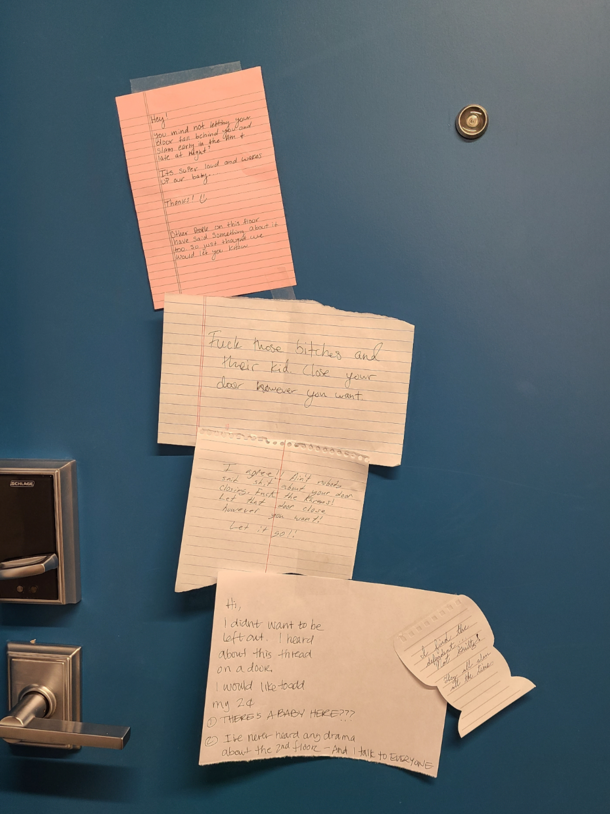 Hey!
You mind not letting your
door fall behind you and
slam early in the AM &
late at night?
Its super loud and wakes
up our baby.
Thanks! :)
Other people on this floor
have said something about it
too so just thought we
would let you know
Fuck those bitches and
their kid close your
door however you want
I agree!! Ain't nobody
said shit about your door
closing. Fuck the Karens!
Let that door close
however you want!!
Let it go!!
Hi,
I didn't want to be
left out. I heard
about this thread
on a door.
I would like to add
my 2¢
① THERE'S A BABY HERE???
② I've never heard any drama
about the 2nd floor — And I talk to EVERYONE
I find this
all the time.
SCHLAGE